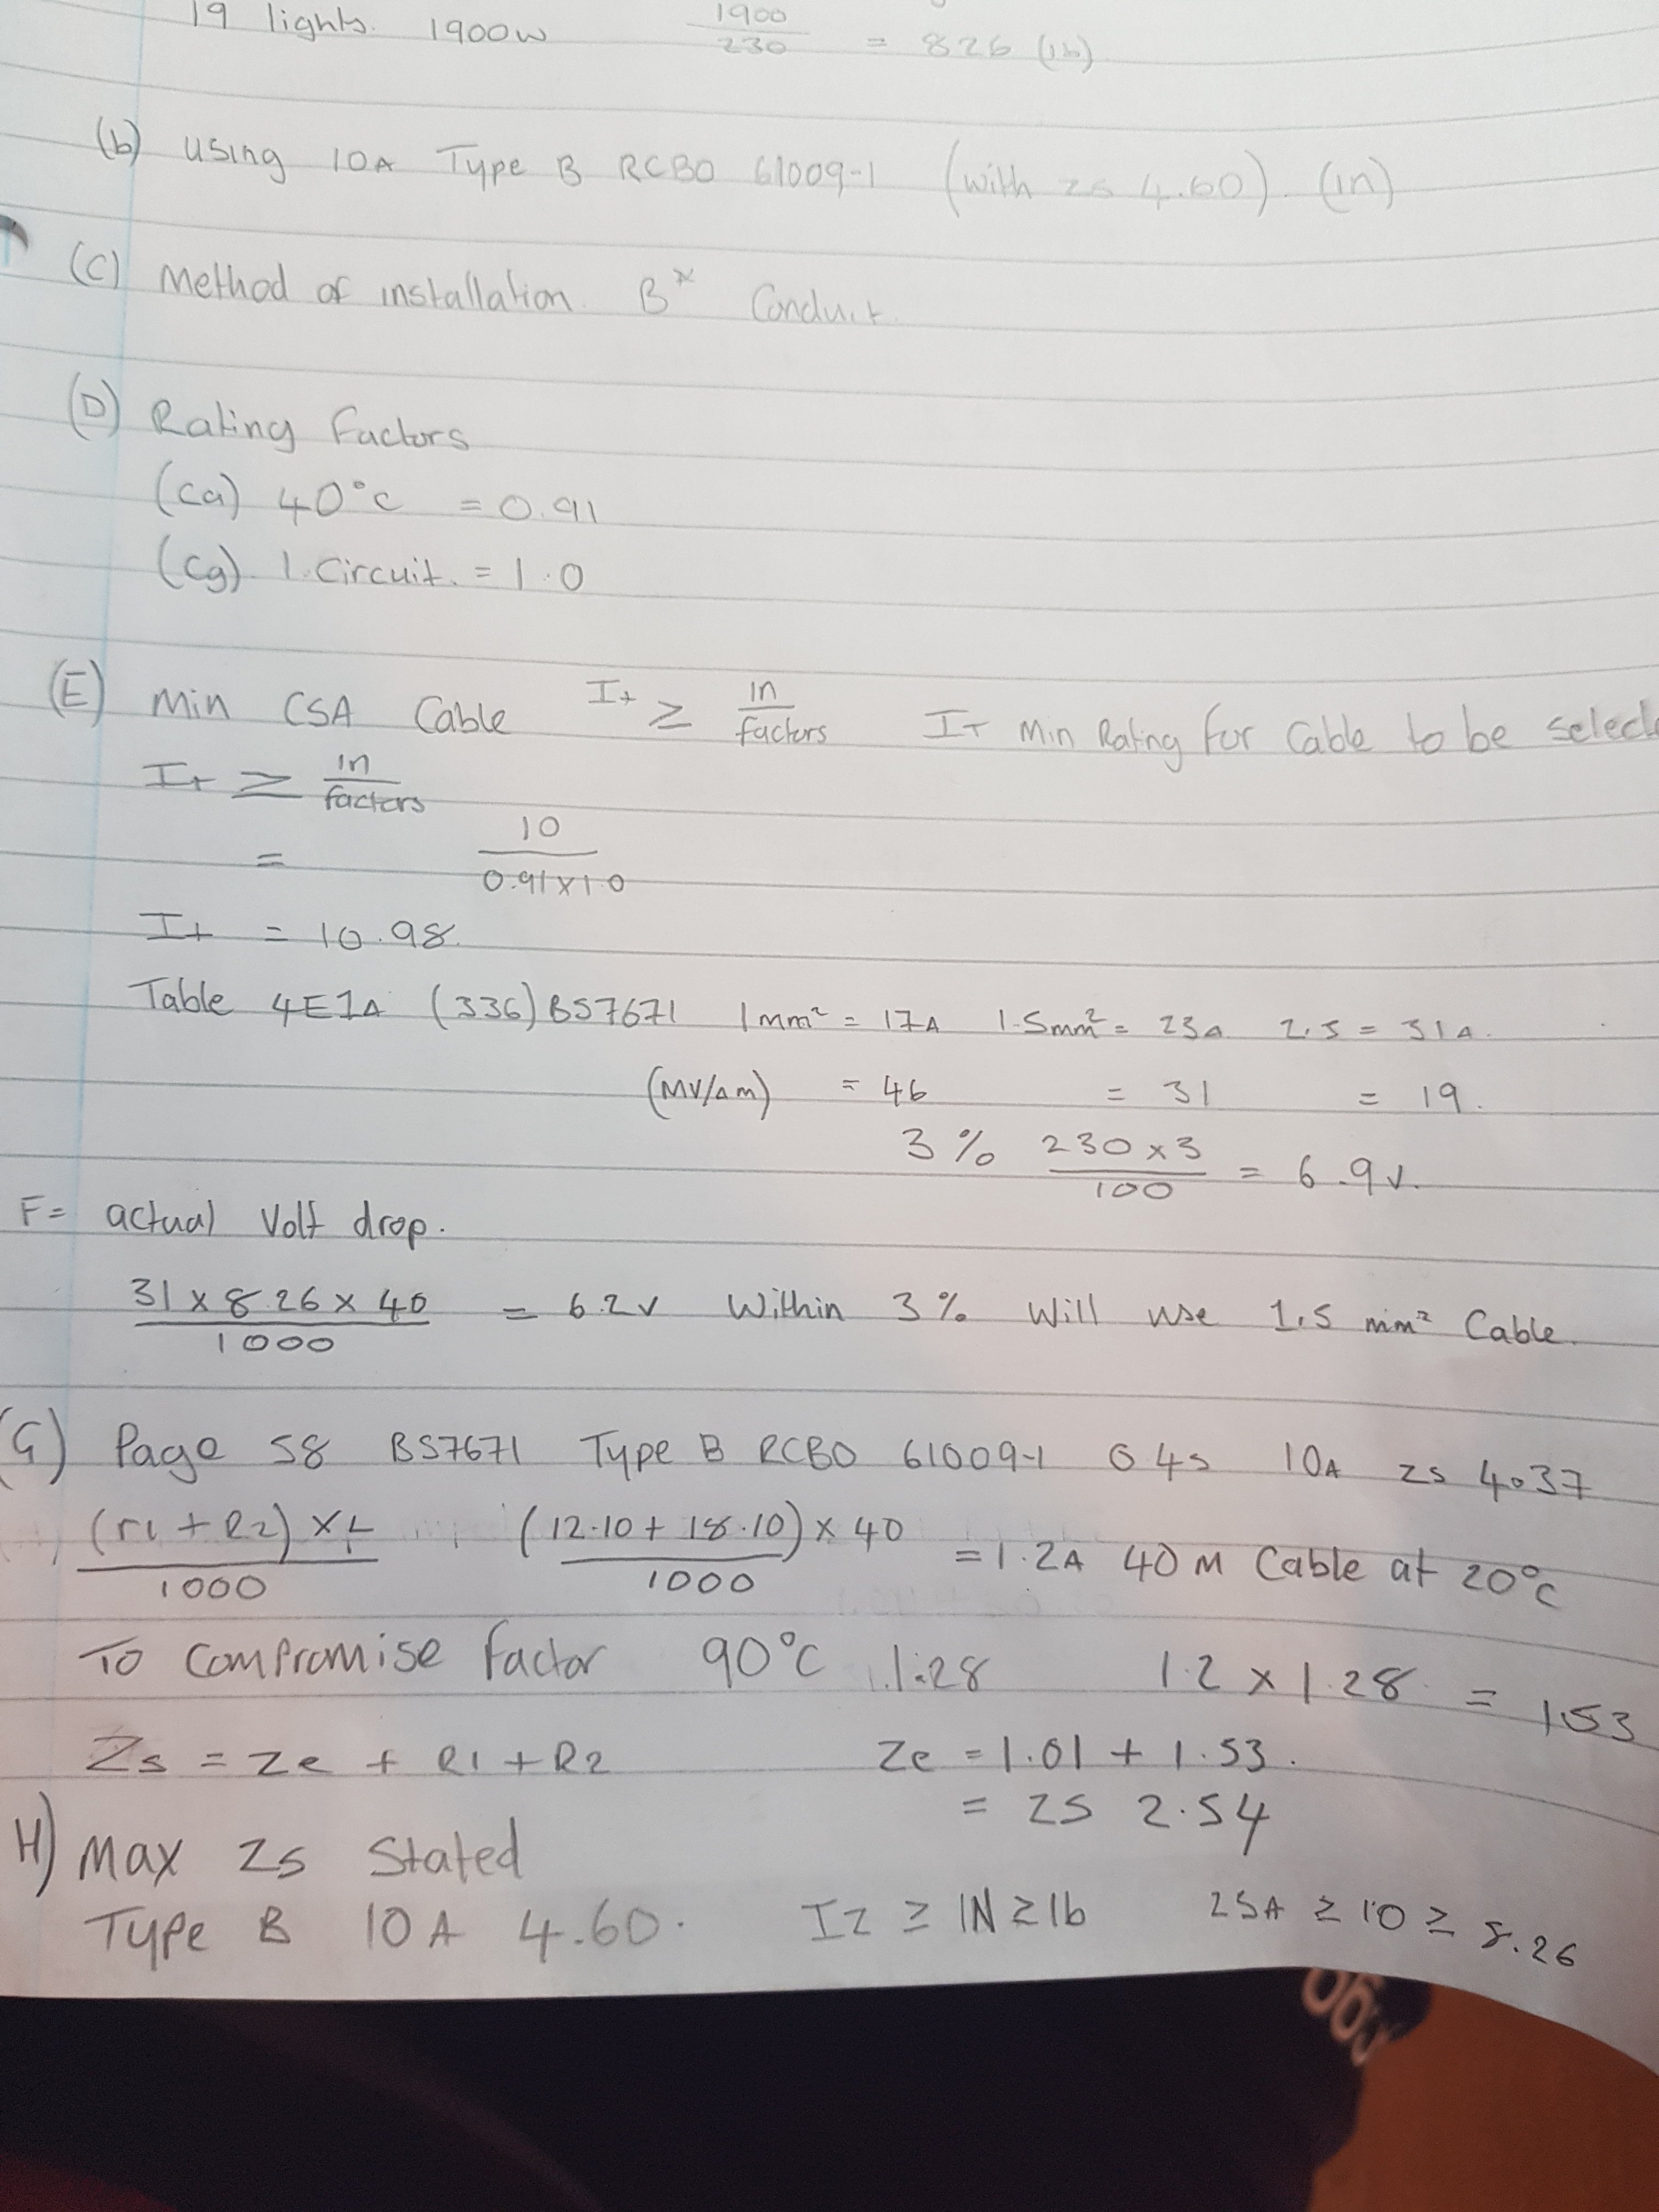 19 lights. 1900w 1900/230 = 826 (Ib)
(b) using 10A Type B RCBO 61009-1 (with zs 4.60). (In)
(C) Method of installation. B* Conduit.
(D) Rating Factors
(Ca) 40°c = 0.91
(Cg). 1. Circuit. = 1.0
(E) Min CSA Cable It ≥ in/factors IT Min Rating for Cable to be select
It ≥ in/factors
= 10/0.91x1.0
It = 10.98.
Table 4E1A (336) BS7671 1mm² = 17A 1.5mm² = 23A 2.5 = 31A.
(MV/Am) = 46 = 31 = 19.
3% 230x3/100 = 6.9v.
F= actual Volt drop.
31 x 8.26 x 40/1000 = 6.2v Within 3% Will use 1.5 mm² Cable.
(G) Page 58 BS7671 Type B RCBO 61009-1 0.4s 10A zs 4.37
(r1 + R2) x L/1000 (12.10 + 18.10) x 40/1000 = 1.2A 40M Cable at 20°c
To Compromise factor 90°C 1.28 1.2 x 1.28 = 1.53
Zs = Ze + R1 + R2 Ze = 1.01 + 1.53.
= ZS 2.54
H) Max Zs Stated
Type B 10A 4.60. IZ ≥ IN ≥ Ib ≥ 10 ≥ 8.26